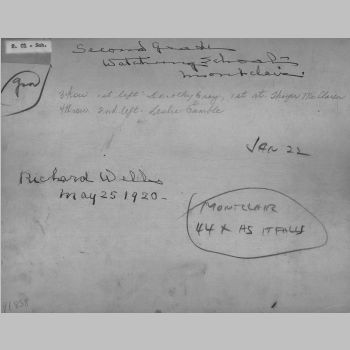 E. O. - Sch.
Second Grade
Watchung School -
Montclair
gm
3d row 1st left Dorothy Gray, 1st at
4th row 2nd left - Leslie Gamble
JAN 22
Richard Wells
May 25 1920 -
MONTCLAIR
44 X AS IT FALLS